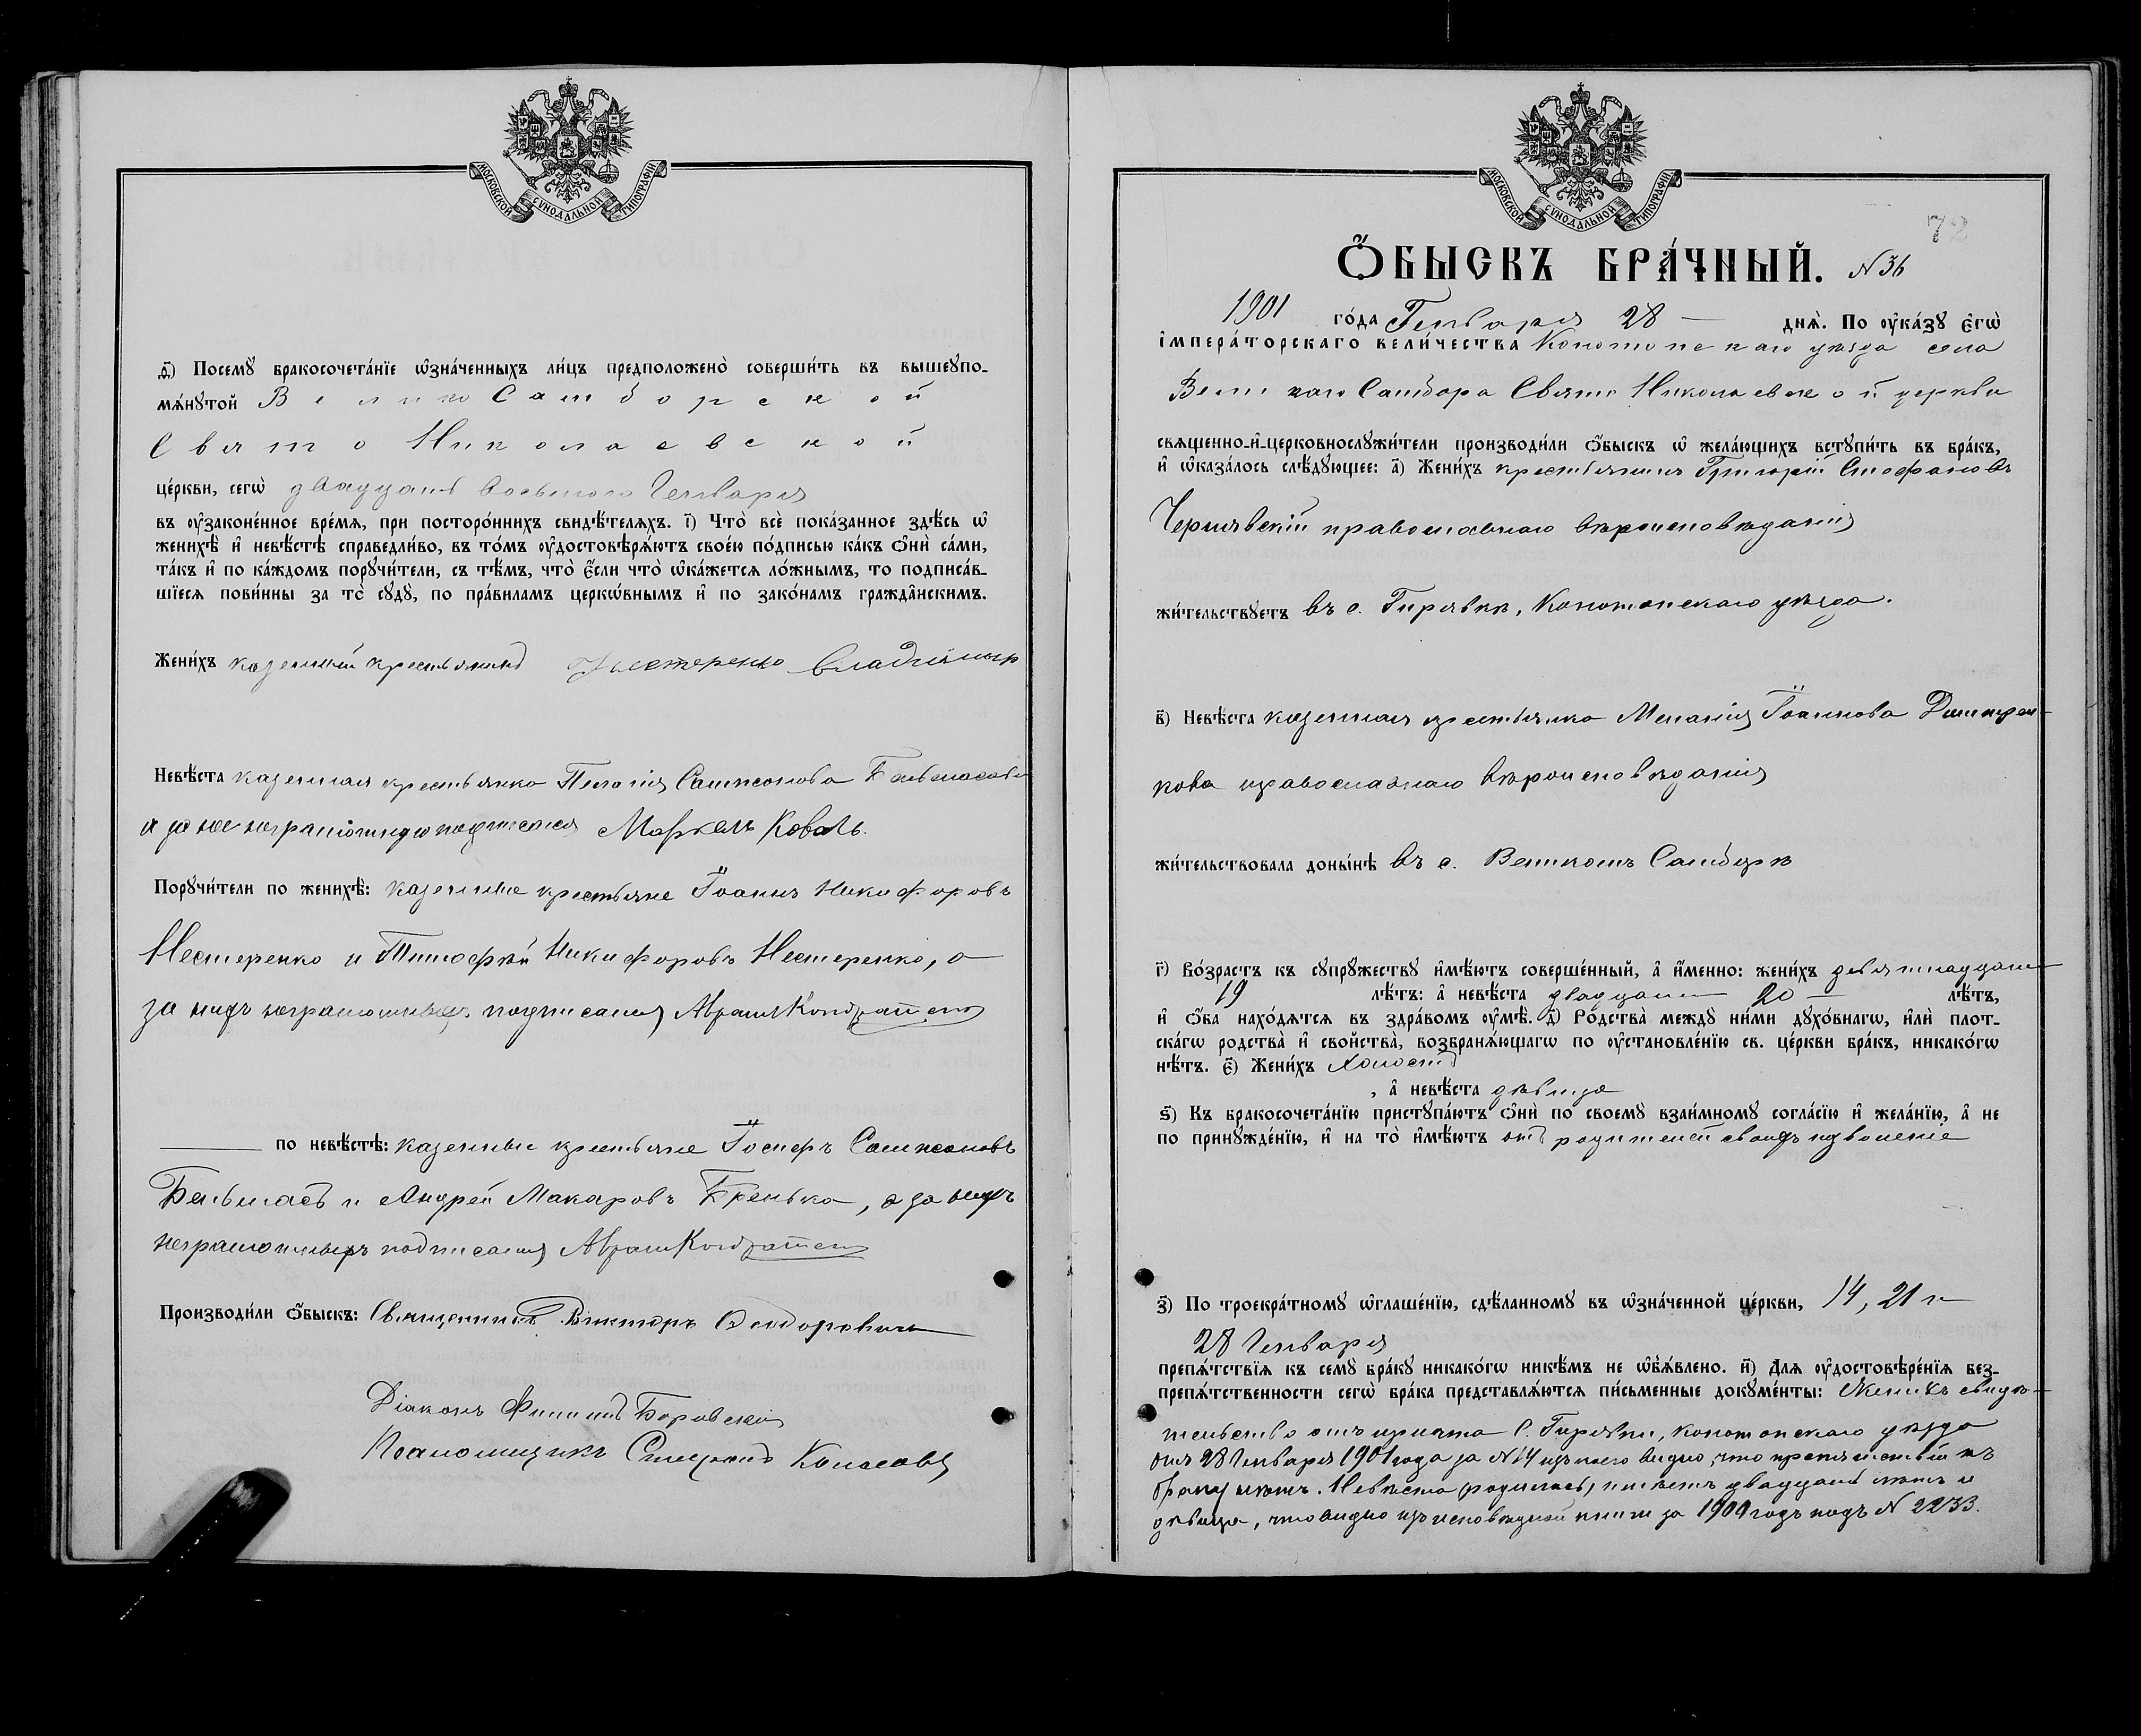 МОСКОВСКОЙ СѴНОДАЛЬНОЙ ТИПОГРАФІИ
ѳ҃) Посемꙋ̀ бракосочета́нїе ѡ҆зна́ченныхъ ли́цъ предположено̀ соверши́ть въ вышеꙋпо-
мѧ́нꙋтой Велико Самборской
Свято Николаевской
це́ркви, сегѡ̀ двадцать восьмого Генваря
въ ᲂу҆законе́нное вре́мѧ, при посторо́ннихъ свидѣ́телѧхъ. і҃) Что̀ всѐ пока́занное здѣ́сь ѡ҆
женихѣ̀ и҆ невѣ́стѣ справедли́во, въ то́мъ ᲂу҆достовѣрѧ́ютъ свое́ю по́дписью ка́къ ѻ҆нѝ са́ми,
та́къ и҆ по ка́ждомъ порꙋчи́тели, съ тѣ́мъ, что̀ є҆́сли что̀ ѡ҆ка́жетсѧ ло́жнымъ, то подписа́в-
шїесѧ пови́нны за то̀ сꙋдꙋ̀, по пра́виламъ церко́внымъ и҆ по зако́намъ гражда́нскимъ.
Жени́хъ казенный крестьянинъ Нестеренко Владиміръ
Невѣ́ста казенная крестьянка Пелагія Сампсонова
а за нее неграмотную подписался Маркелъ Коваль.
Порꙋчи́тели по женихѣ̀: казенные крестьяне Іоаннъ Никифоровъ
Нестеренко и Тимофѣй Никифоровъ Нестеренко, а
за нихъ неграмотныхъ подписался Аврам Кондратенко
по невѣ́стѣ: казенные крестьяне Іосифъ Сампсоновъ
и Андрей Макаровъ Бренько, а за нихъ
неграмотныхъ подписался Аврам Кондратенко
Производи́ли ѻ҆́быскъ: Священникъ Викторъ Ѳеодоровичъ
Діаконъ Филиппъ Боровскій
Псаломщикъ
МОСКОВСКОЙ СѴНОДАЛЬНОЙ ТИПОГРАФІИ
72
Ѻ҆́БЫСКЪ БРА́ЧНЫЙ. N 36
1901 го́да Генваря 28 — днѧ̀. По ᲂу҆ка́зꙋ є҆гѡ̀
і҆мпера́торскаго вели́чества Конотопскаго уѣзда села
Великаго Самбора Свято Николаевской церкви
свѧще́нно-и҆-церковнослꙋжи́тели производи́ли ѻ҆́быскъ ѡ҆ жела́ющихъ встꙋпи́ть въ бра́къ,
и҆ ѡ҆каза́лось слѣ́дꙋющее: а҃) Жени́хъ крестьянинъ Григорій Стефановъ
Чернявскій православнаго вѣроисповѣданія
жи́тельствꙋетъ въ с. Гирявкѣ, Конотопскаго уѣзда.
в҃) Невѣ́ста казенная крестьянка Меланія Іоаннова Дмитрен-
кова православнаго вѣроисповѣданія
жи́тельствовала доны́нѣ въ с. Великомъ Самборѣ
г҃) Во́зрастъ къ сꙋпрꙋ́жествꙋ и҆мѣ́ютъ соверше́нный, а҆ и҆́менно: жени́хъ девятнадцать
19 лѣ́тъ: а҆ невѣ́ста двадцать 20 — лѣ́тъ,
и҆ ѻ҆́ба нахо́дѧтсѧ въ здра́вомъ ᲂу҆мѣ̀. д҃) Ро́дства междꙋ̀ ни́ми дꙋхо́внагѡ, и҆лѝ пло́т-
скагѡ родства̀ и҆ свойства̀, возбранѧ́ющагѡ по ᲂу҆становле́нїю св. це́ркви бра́къ, никако́гѡ
нѣ́тъ. є҃) Жени́хъ Холостъ
, а҆ невѣ́ста дѣвица
ѕ҃) Къ бракосочета́нїю пристꙋпа́ютъ ѻ҆нѝ по своемꙋ̀ взаи́мномꙋ согла́сїю и҆ жела́нїю, а҆ не
по принꙋжде́нїю, и҆ на то̀ и҆мѣ́ютъ отъ родителей своихъ изволеніе
з҃) По троекра́тномꙋ ѡ҆глаше́нїю, сдѣ́ланномꙋ въ ѡ҆зна́ченной це́ркви, 14, 21 и
28 Генваря
препѧ́тствїѧ къ семꙋ̀ бра́кꙋ никако́гѡ никѣ́мъ не ѡ҆бъѧ́влено. и҃) Длѧ ᲂу҆достовѣре́нїѧ без-
препѧ́тственности сегѡ̀ бра́ка представлѧ́ютсѧ пи́сьменные докꙋме́нты: Женихъ свидѣ-
тельство отъ причта с. Гирявки, Конотопскаго уѣзда
отъ 28 Генваря 1901 года за N 14 изъ коего видно, что препятствій къ
браку нѣтъ. Невѣста двадцать лѣтъ и
дѣвица, что видно изъ исповѣдной книги за 1900 годъ подъ N 2233.